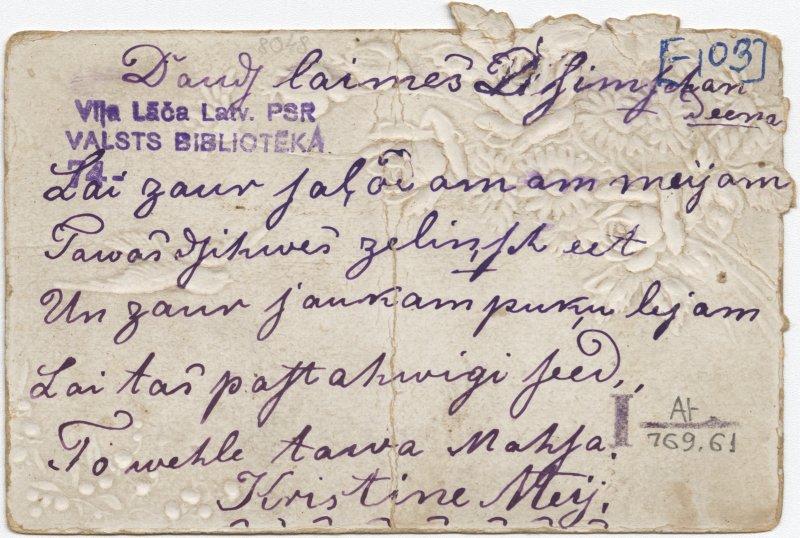 8048
[-03]
Daudz laimes Dsimschan
deena
Vija Lāča Latv. PSR
VALSTS BIBLIOTĒKA
74-
Lai zaur salōi am am meijam
Tawas dzihwes zelinsch eet
Un zaur jaukam puķu lejam
Lai tas pastahwigi seed,,
To wehle tawa Mahsa.
Kristine Meij.
I At
769.61